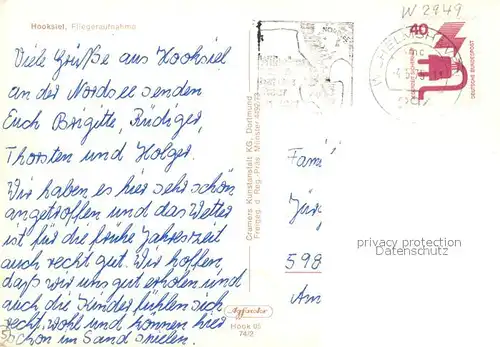 Hooksiel, Fliegeraufnahme
Viele Grüße aus Hooksiel
an der Nordsee senden
Euch Brigitte, Rüdiger,
Thorsten und Holger.
Wir haben es hier sehr schön
angetroffen und das Wetter
ist für die frühe Jahreszeit
auch recht gut. Wir hoffen,
daß wir uns gut erholen und
auch die Kinder fühlen sich
recht wohl und können hier
schon im Sand spielen.
Cramers Kunstanstalt KG, Dortmund
Freigeg. d. Reg.-Präs. Münster 4492/73
Agfacolor
Hook 05
74/2
W 2949
WILHELMSH
40
DEUTSCHE BUNDESPOST
Fami
Jür
598
Am
privacy protection
Datenschutz